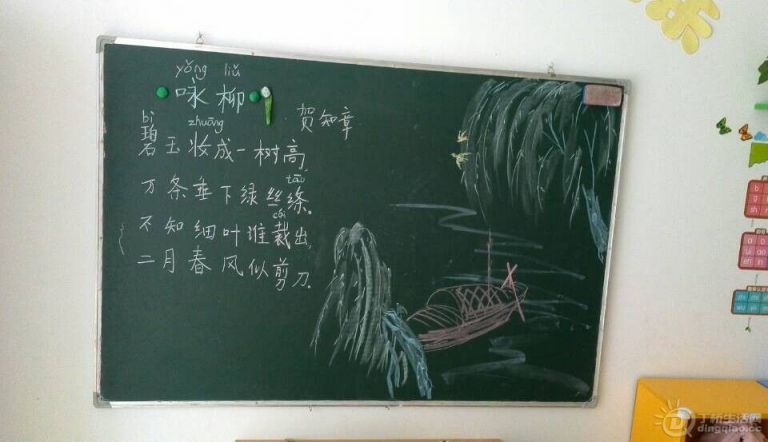 yǒng liǔ
咏柳
贺知章
bì zhuāng
碧玉妆成一树高,
tāo
万条垂下绿丝绦。
cái
不知细叶谁裁出,
二月春风似剪刀。
丁桥生活网
dingqiao.cc